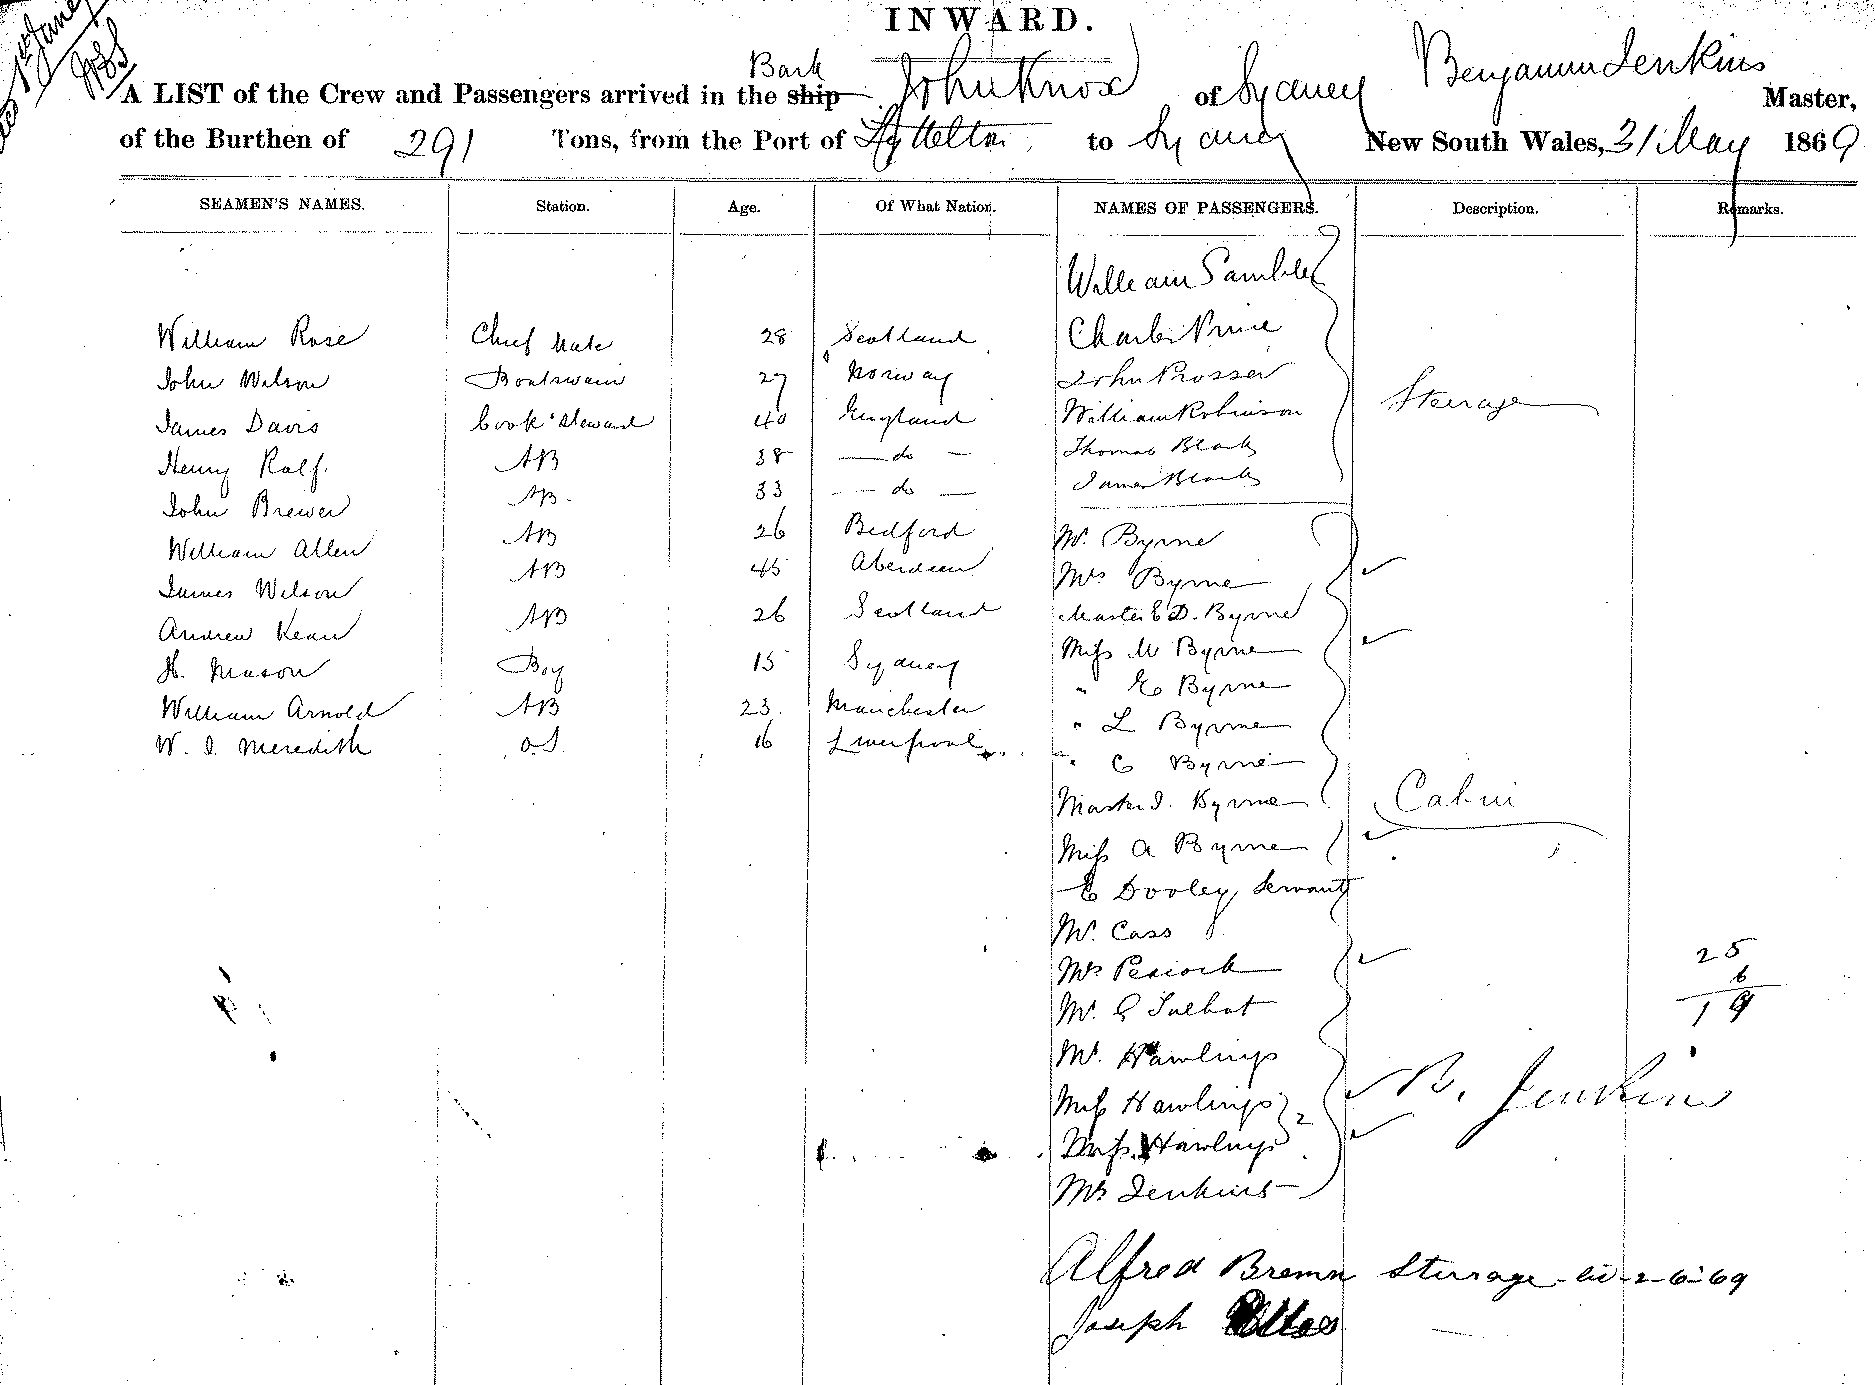 INWARD.
A LIST of the Crew and Passengers arrived in the ship Bark John Knox of Sydney Benjamin Jenkins Master,
of the Burthen of 291 Tons, from the Port of Lyttelton to Sydney New South Wales, 31 May 1869
SEAMEN'S NAMES. Station. Age. Of What Nation. NAMES OF PASSENGERS. Description. Remarks.
William Rose Chief Mate 28 Scotland
John Wilson Boatswain 27 Norway
James Davis Cook & Steward 40 England
Henry Ralf. AB 38 — do —
John Brewer AB 33 — do —
William Allen AB 26 Bedford
James Wilson AB 45 Aberdeen
Andrew Kean AB 26 Scotland
H. Mason Boy 15 Sydney
William Arnold AB 23 Manchester
W. J. Meredith O.S. 16 Liverpool
William
Charles
John Prosser
William Robinson
Thomas Black
James Black
Steerage
Mr. Byrne
Mrs Byrne
Master E D. Byrne
Miss M Byrne
" E Byrne
" L Byrne
" C Byrne
Master J. Byrne
Miss A Byrne
E Dooley, Servant
Mr. Cass
Mrs Peacock
Mr. G Talbot
Mr. Hawlings
Miss Hawlings 2
Miss Hawlings
Mrs Jenkins
Cabin
25
6
19
B. Jenkins
Alfred Steerage 2-6-69
Joseph